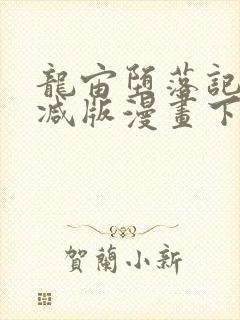 龍宙堕落記
减版漫畫下
賀蘭小新